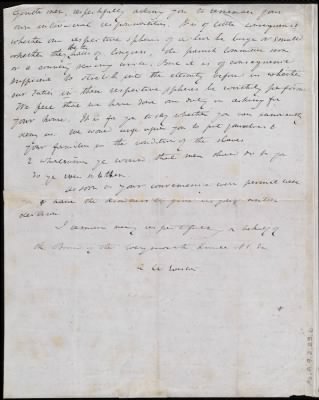 Gentlemen respectfully asking you to remember your
own individual responsibilities. It is of little consequence
whether our respective spheres of action be large or smaller
whether the halls of Congress, the parish Committee room
or a country sewing circle. But it is of consequence
supposing to stretch into the eternity before us whether
our duties in these respective spheres be worthily performed
We feel that we have done our duty in asking for
your house. It is for you to say whether you can conscientiously
deny us. We would urge upon you to put yourselves &
your families in the condition of the slaves
& whatsoever ye would that men should do to you
do ye even so to them
As soon as your convenience will permit will
you have the kindness to give us your written
decision
I remain very respectfully in behalf of
the Board of the Weymouth